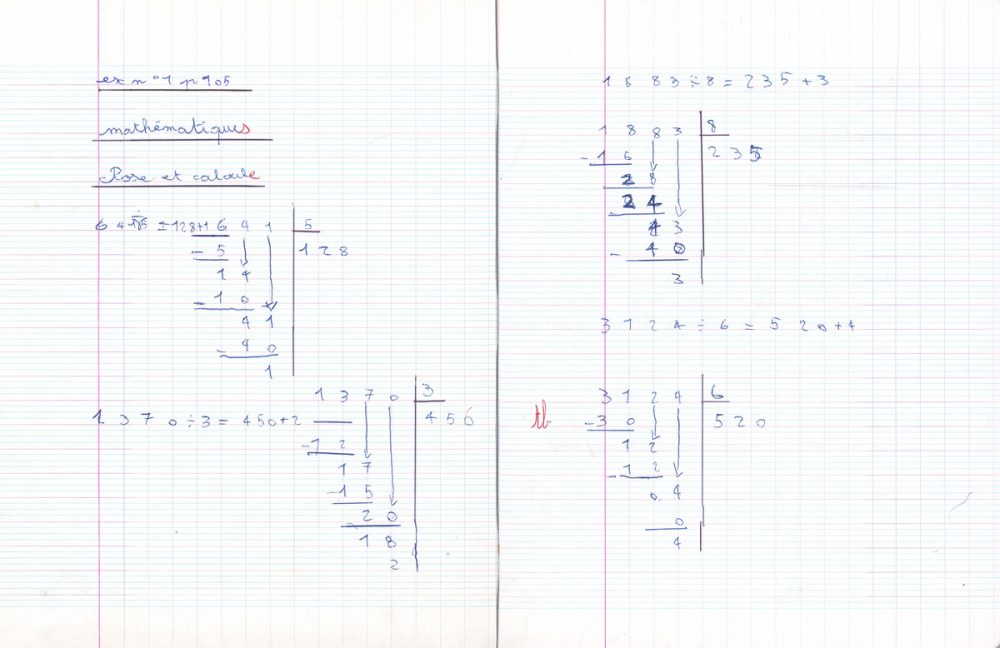 ex n°1 p 105
mathématiques
Pose et calcule
6 4 1÷5 = 128+1
6 4 1 5
- 5 1 2 8
1 4
- 1 0
4 1
- 4 0
1
1 3 7 0 ÷ 3 = 450+2
1 3 7 0 3
- 1 2 4 5 6
1 7
- 1 5
2 0
1 8
2
1 8 8 3 ÷ 8 = 2 3 5 + 3
1 8 8 3 8
- 1 6 2 3 5
2 8
2 4
4 3
- 4 0
3
3 1 2 4 ÷ 6 = 5 2 0 + 4
tb
3 1 2 4 6
- 3 0 5 2 0
1 2
- 1 2
0 4
0
4